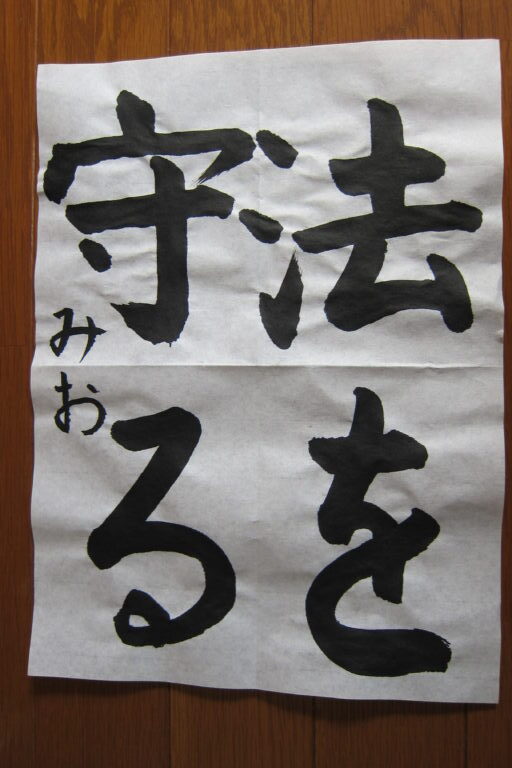 法を
守る
みお